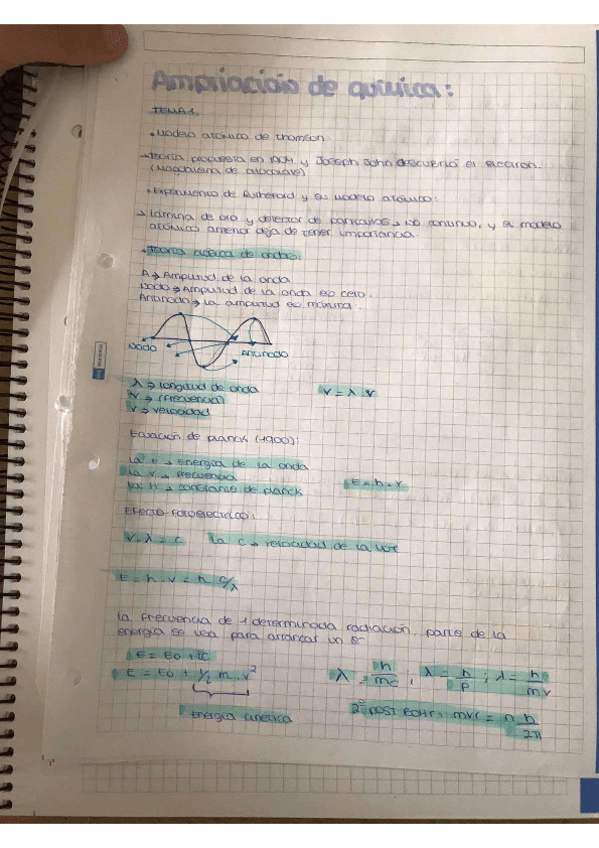 Ampliación de química:
TEMA 1.
• Modelo atómico de Thomson.
→ Teoría propuesta en 1904 y Joseph John descubrió el electrón.
(Magdalena de chocolate)
• Experimento de Rutherford y su modelo atómico:
→ Lámina de oro y detector de partículos → No continuo, y su modelo
atómico anterior deja de tener importancia.
• Teoría clásica de ondas:
A → Amplitud de la onda
Nodo → Amplitud de la onda es cero.
Antinodo → La amplitud es máxima.
Nodo
Antinodo
λ → longitud de onda
ν → (frecuencia)
V → velocidad
V = λ · ν
Ecuación de Planck (1900):
La E → Energía de la onda
La ν → frecuencia
La h → constante de Planck
E = h · ν
Efecto-fotoeléctrico:
ν · λ = c La c → velocidad de la luz
E = h · ν = h c/λ
La frecuencia de 1 determinada radiación, parte de la
energía se usa para arrancar un e-
E = E0 + Ec
E = E0 + 1/2 m · v²
Energía cinética
λ = h/mc ; λ = h/p ; λ = h/mv
2º post Bohr: mvr = n h/2π